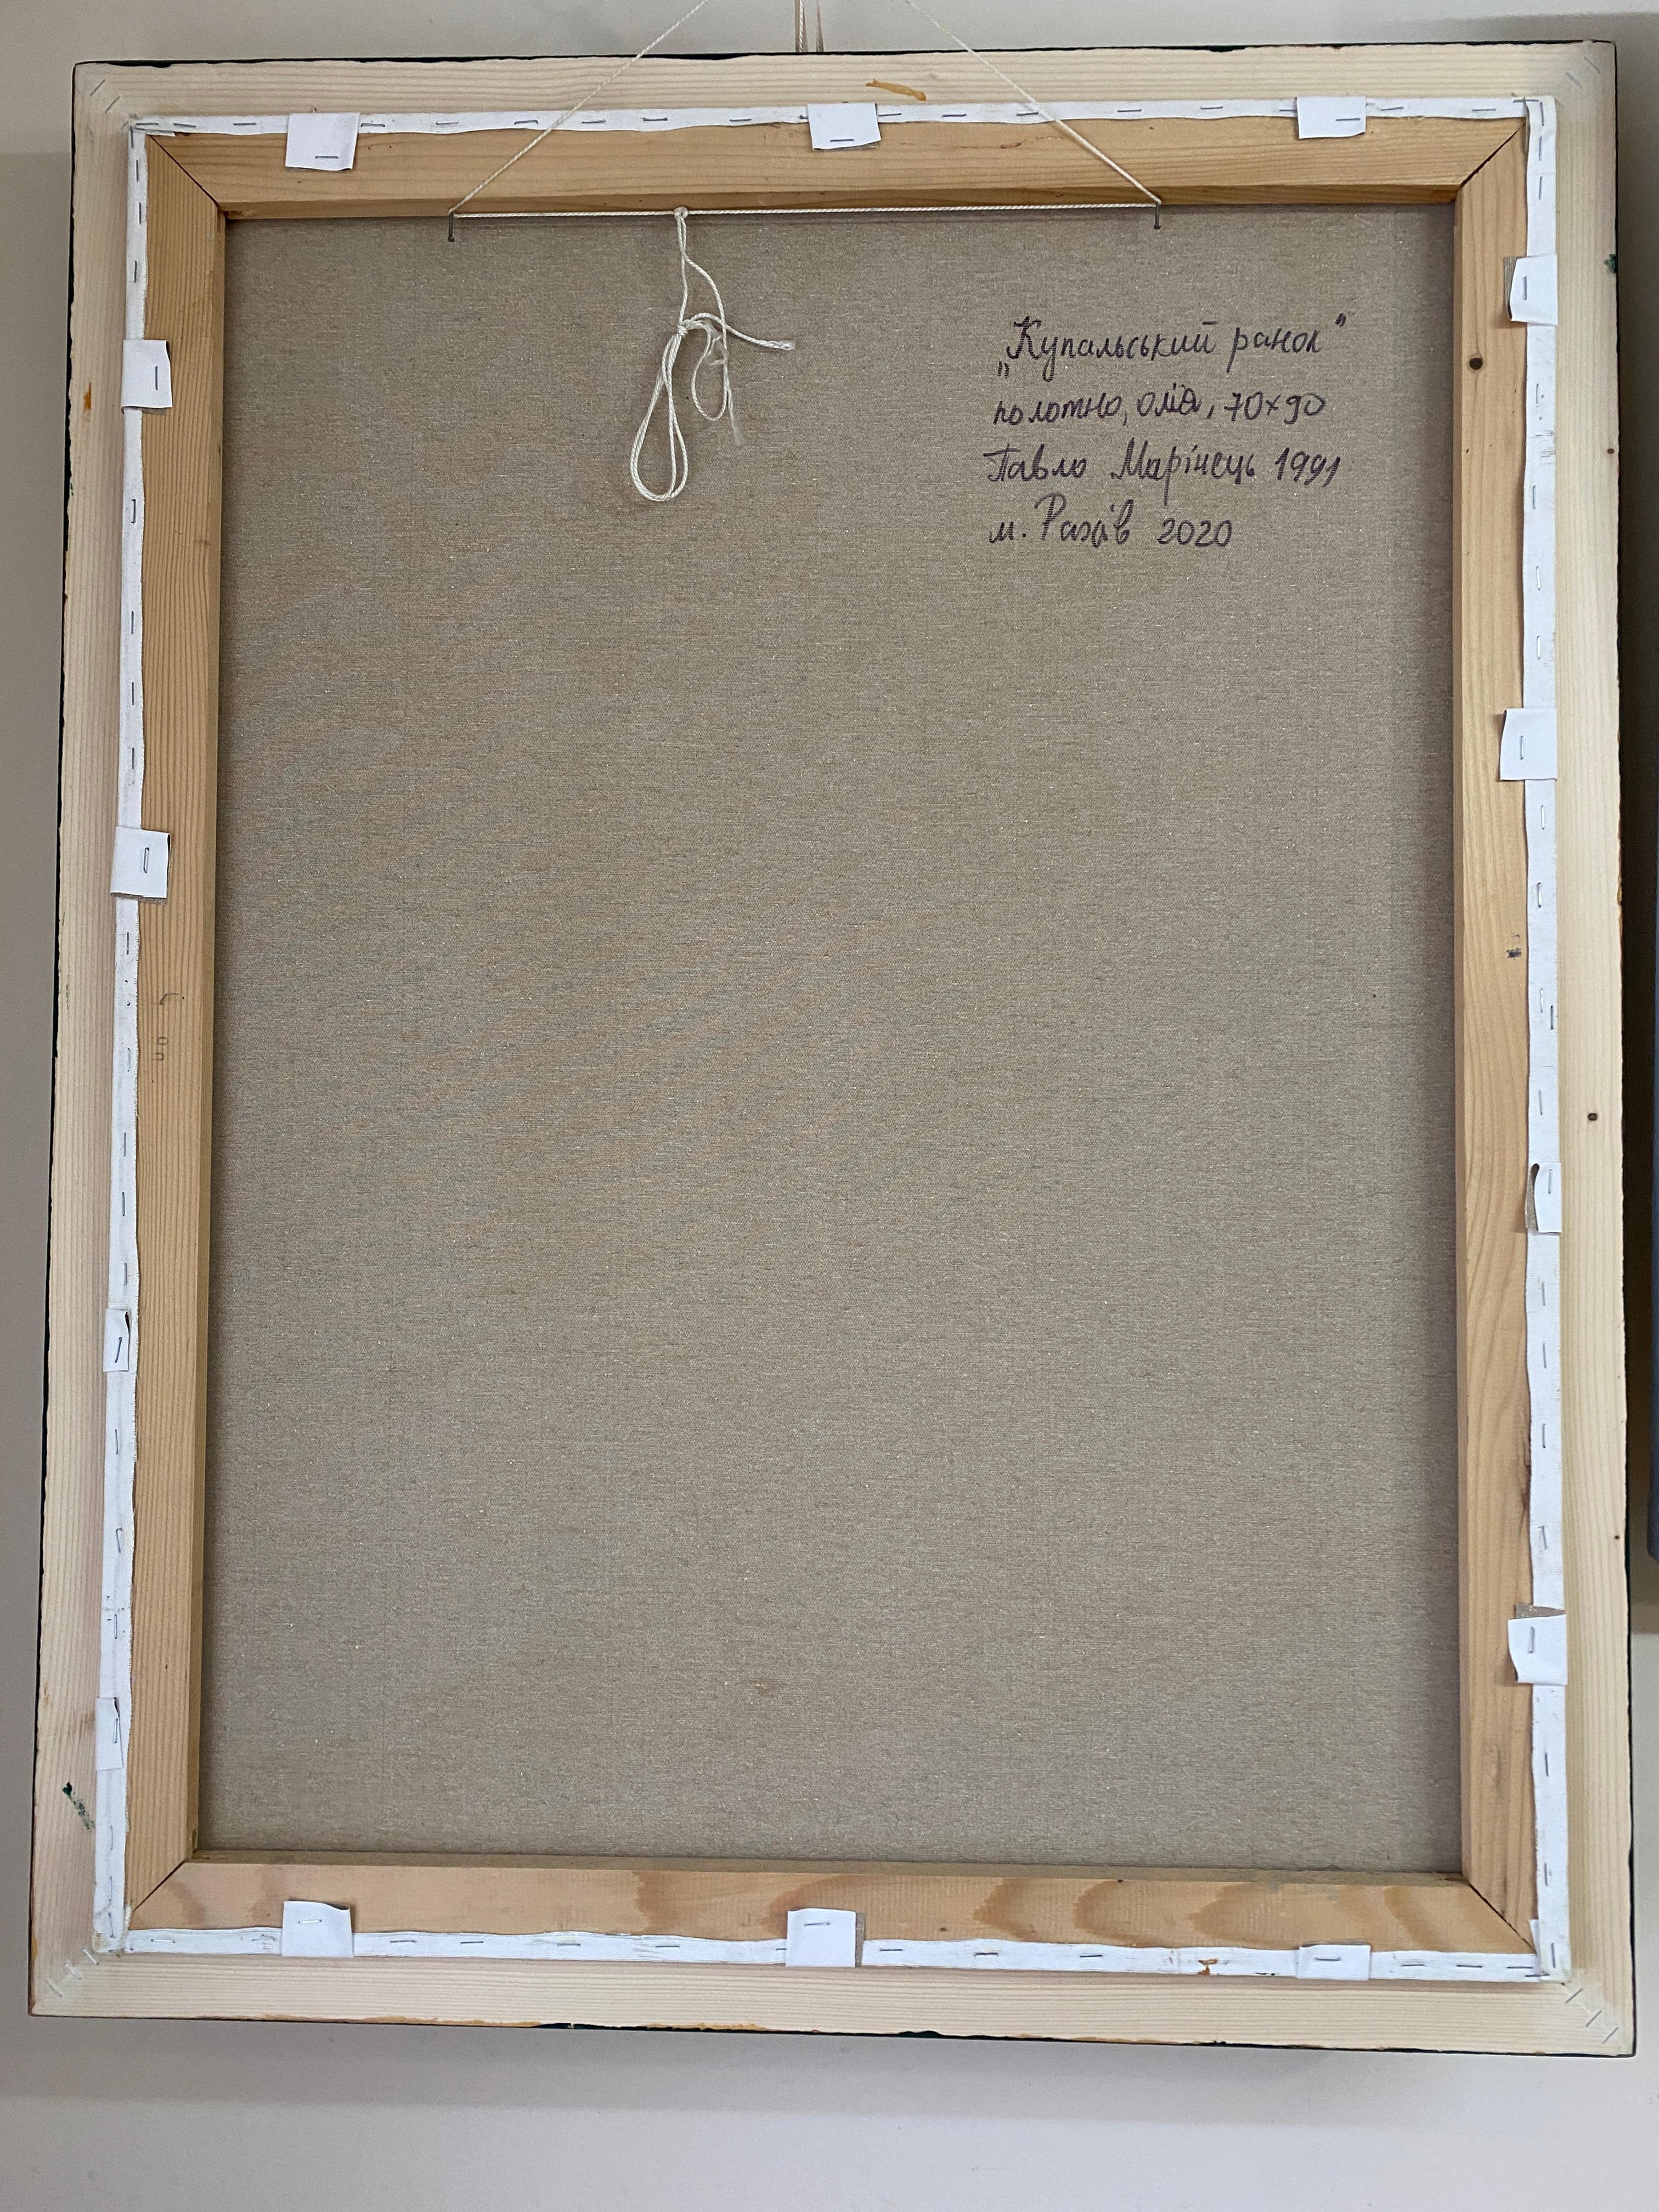 „Купальський ранок"
полотно, олія, 70×90
Павло Марінець 1991
м. Рахів 2020